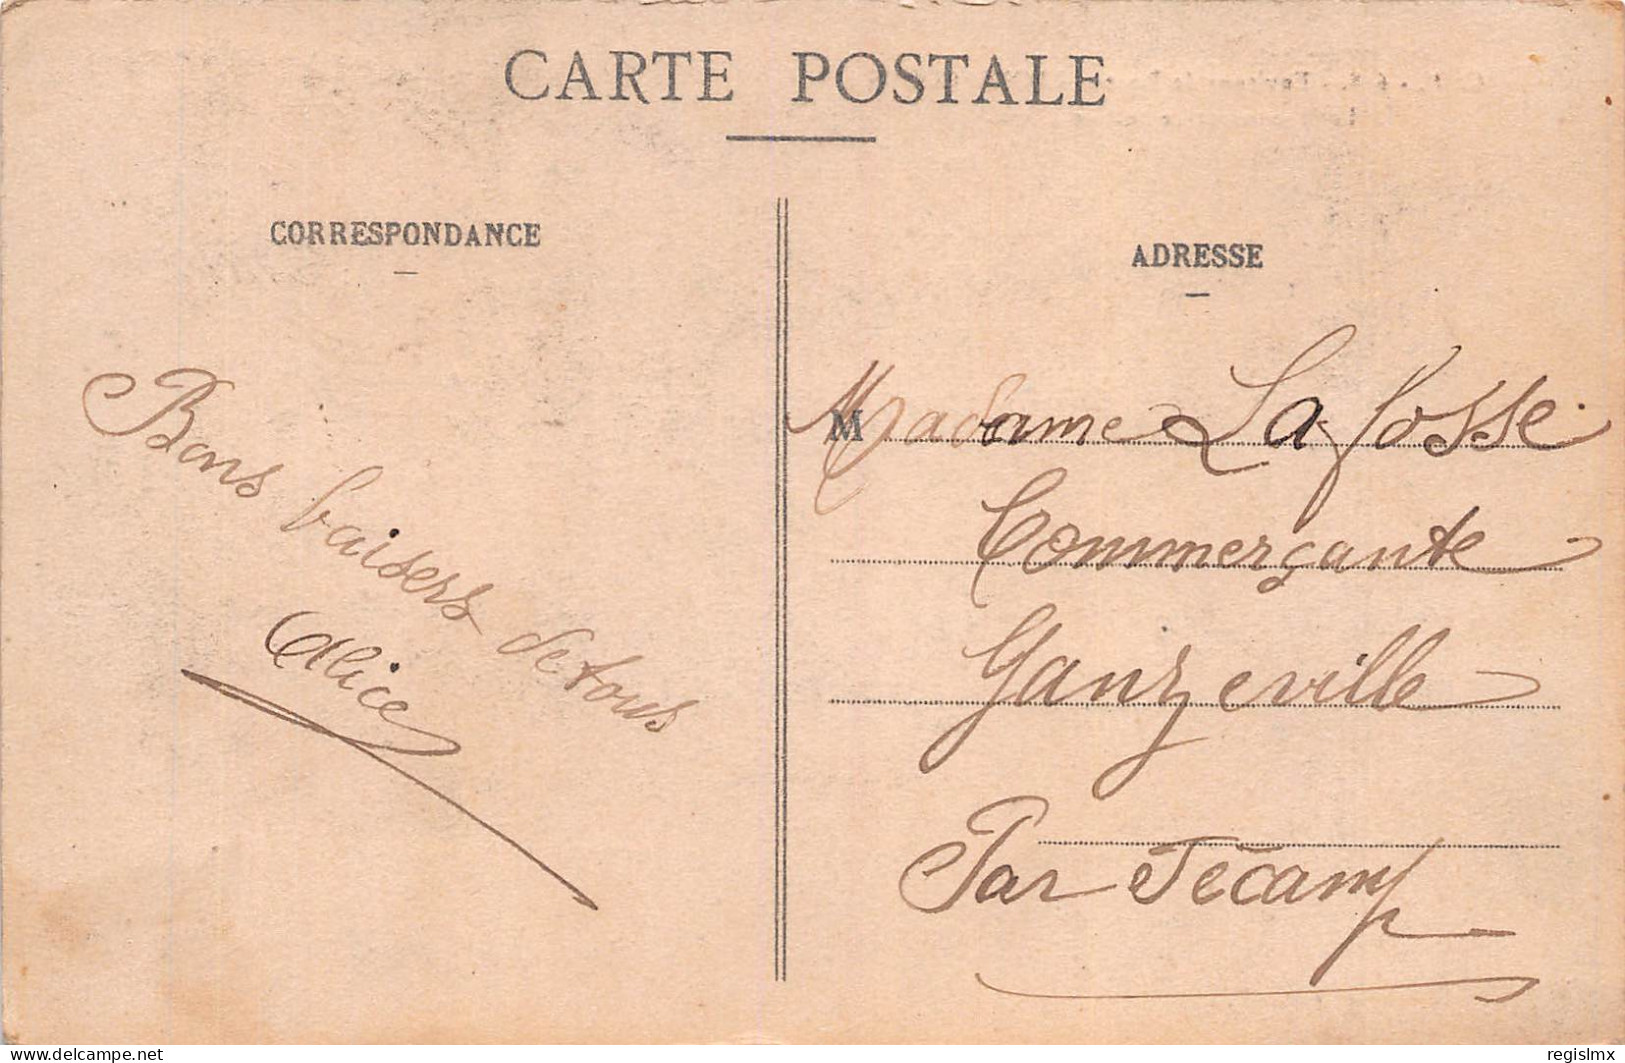 CARTE POSTALE
CORRESPONDANCE
Bons baisers de tous
Alice
ADRESSE
M Madame La fosse
Commerçante
Ganzeville
Par Fécamp
delcampe.net
regislmx